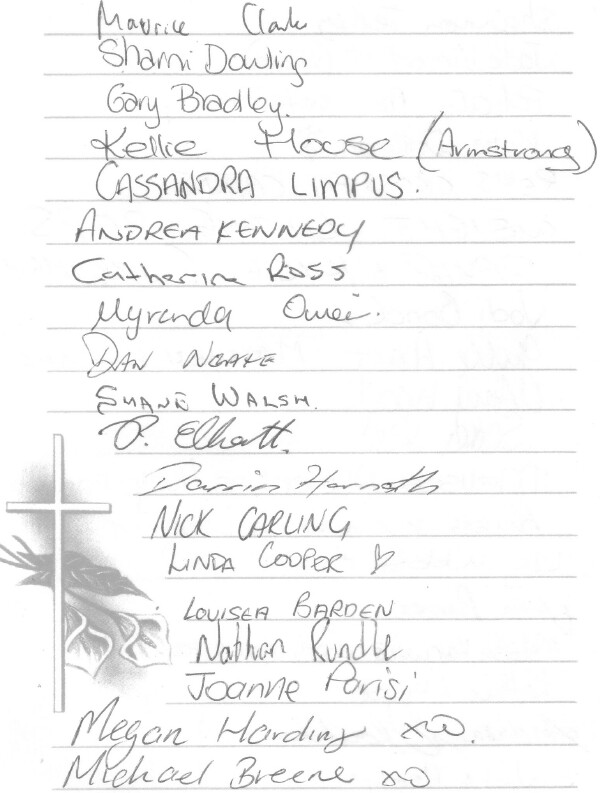 Maurice Clark
Sharni Dowling
Gary Bradley.
Kellie House (Armstrong)
CASSANDRA LIMPUS.
ANDREA KENNEDY
Catherine Ross
Myrenda
DAN
SHANE WALSH.
P. Elliott.
Darrin
NICK CARLING
LINDA COOPER ♡
LOUISEA BARDEN
Nathan Rundle
Joanne Parisi
Megan Harding xo.
Michael Breene xo